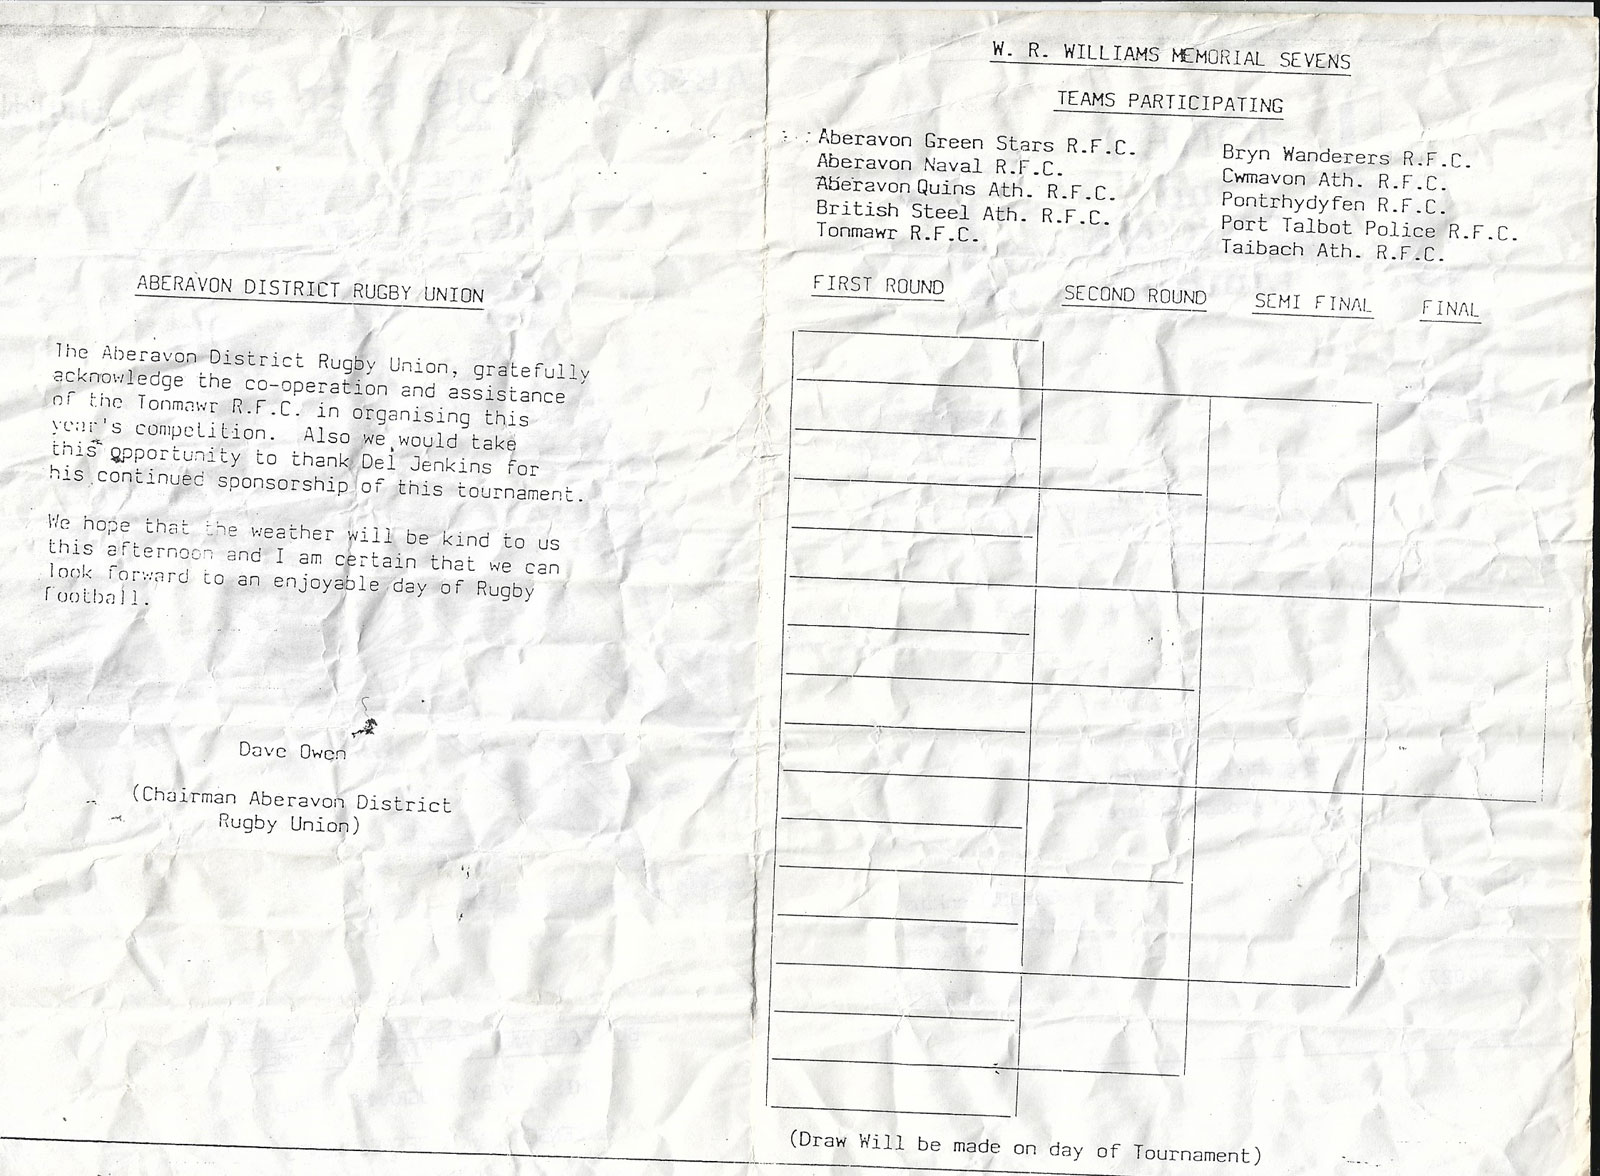 ABERAVON DISTRICT RUGBY UNION
The Aberavon District Rugby Union, gratefully
acknowledge the co-operation and assistance
of the Tonmawr R.F.C. in organising this
year's competition. Also we would take
this opportunity to thank Del Jenkins for
his continued sponsorship of this tournament.
We hope that the weather will be kind to us
this afternoon and I am certain that we can
look forward to an enjoyable day of Rugby
football.
Dave Owen
(Chairman Aberavon District
Rugby Union)
W. R. WILLIAMS MEMORIAL SEVENS
TEAMS PARTICIPATING
Aberavon Green Stars R.F.C.
Aberavon Naval R.F.C.
Aberavon Quins Ath. R.F.C.
British Steel Ath. R.F.C.
Tonmawr R.F.C.
Bryn Wanderers R.F.C.
Cwmavon Ath. R.F.C.
Pontrhydyfen R.F.C.
Port Talbot Police R.F.C.
Taibach Ath. R.F.C.
FIRST ROUND SECOND ROUND SEMI FINAL FINAL
(Draw Will be made on day of Tournament)